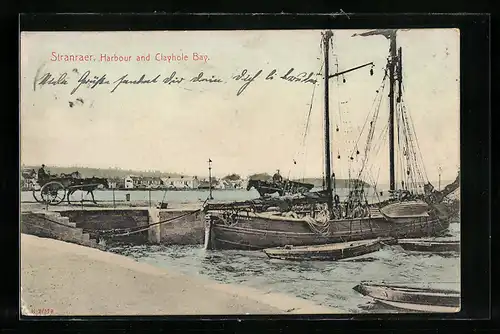 Stranraer, Harbour and Clayhole Bay.
Viele Grüße sendet dir dein dich